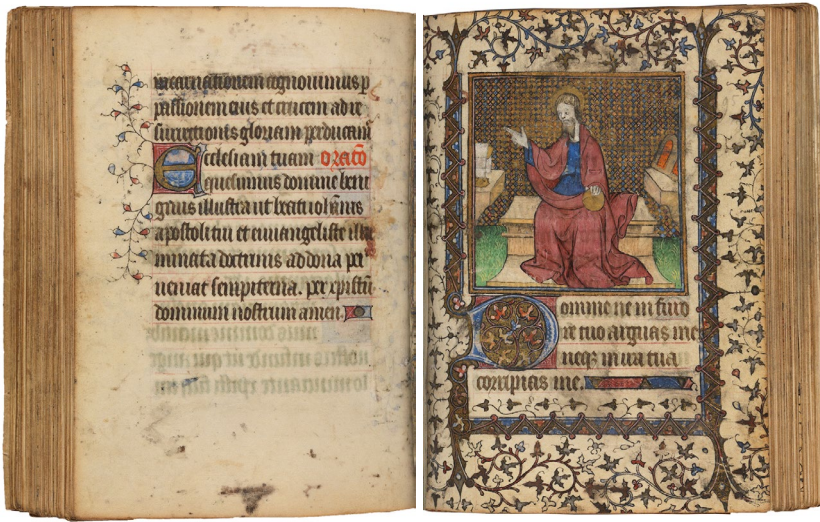 incarnationem cognovimus p
passionem eius et crucem ad re
surrectionis gloriam perducam
Ecclesiam tuam oracō
quesumus domine beni
gnus illustra ut beati iohīs
apostoli tui et euuangeliste illu
minata doctrinis ad dona per
ueniat sempiterna. per xpistū
dominum nostrum amen.
Domine ne in furo
re tuo arguas me
neqz in ira tua
corripias me.